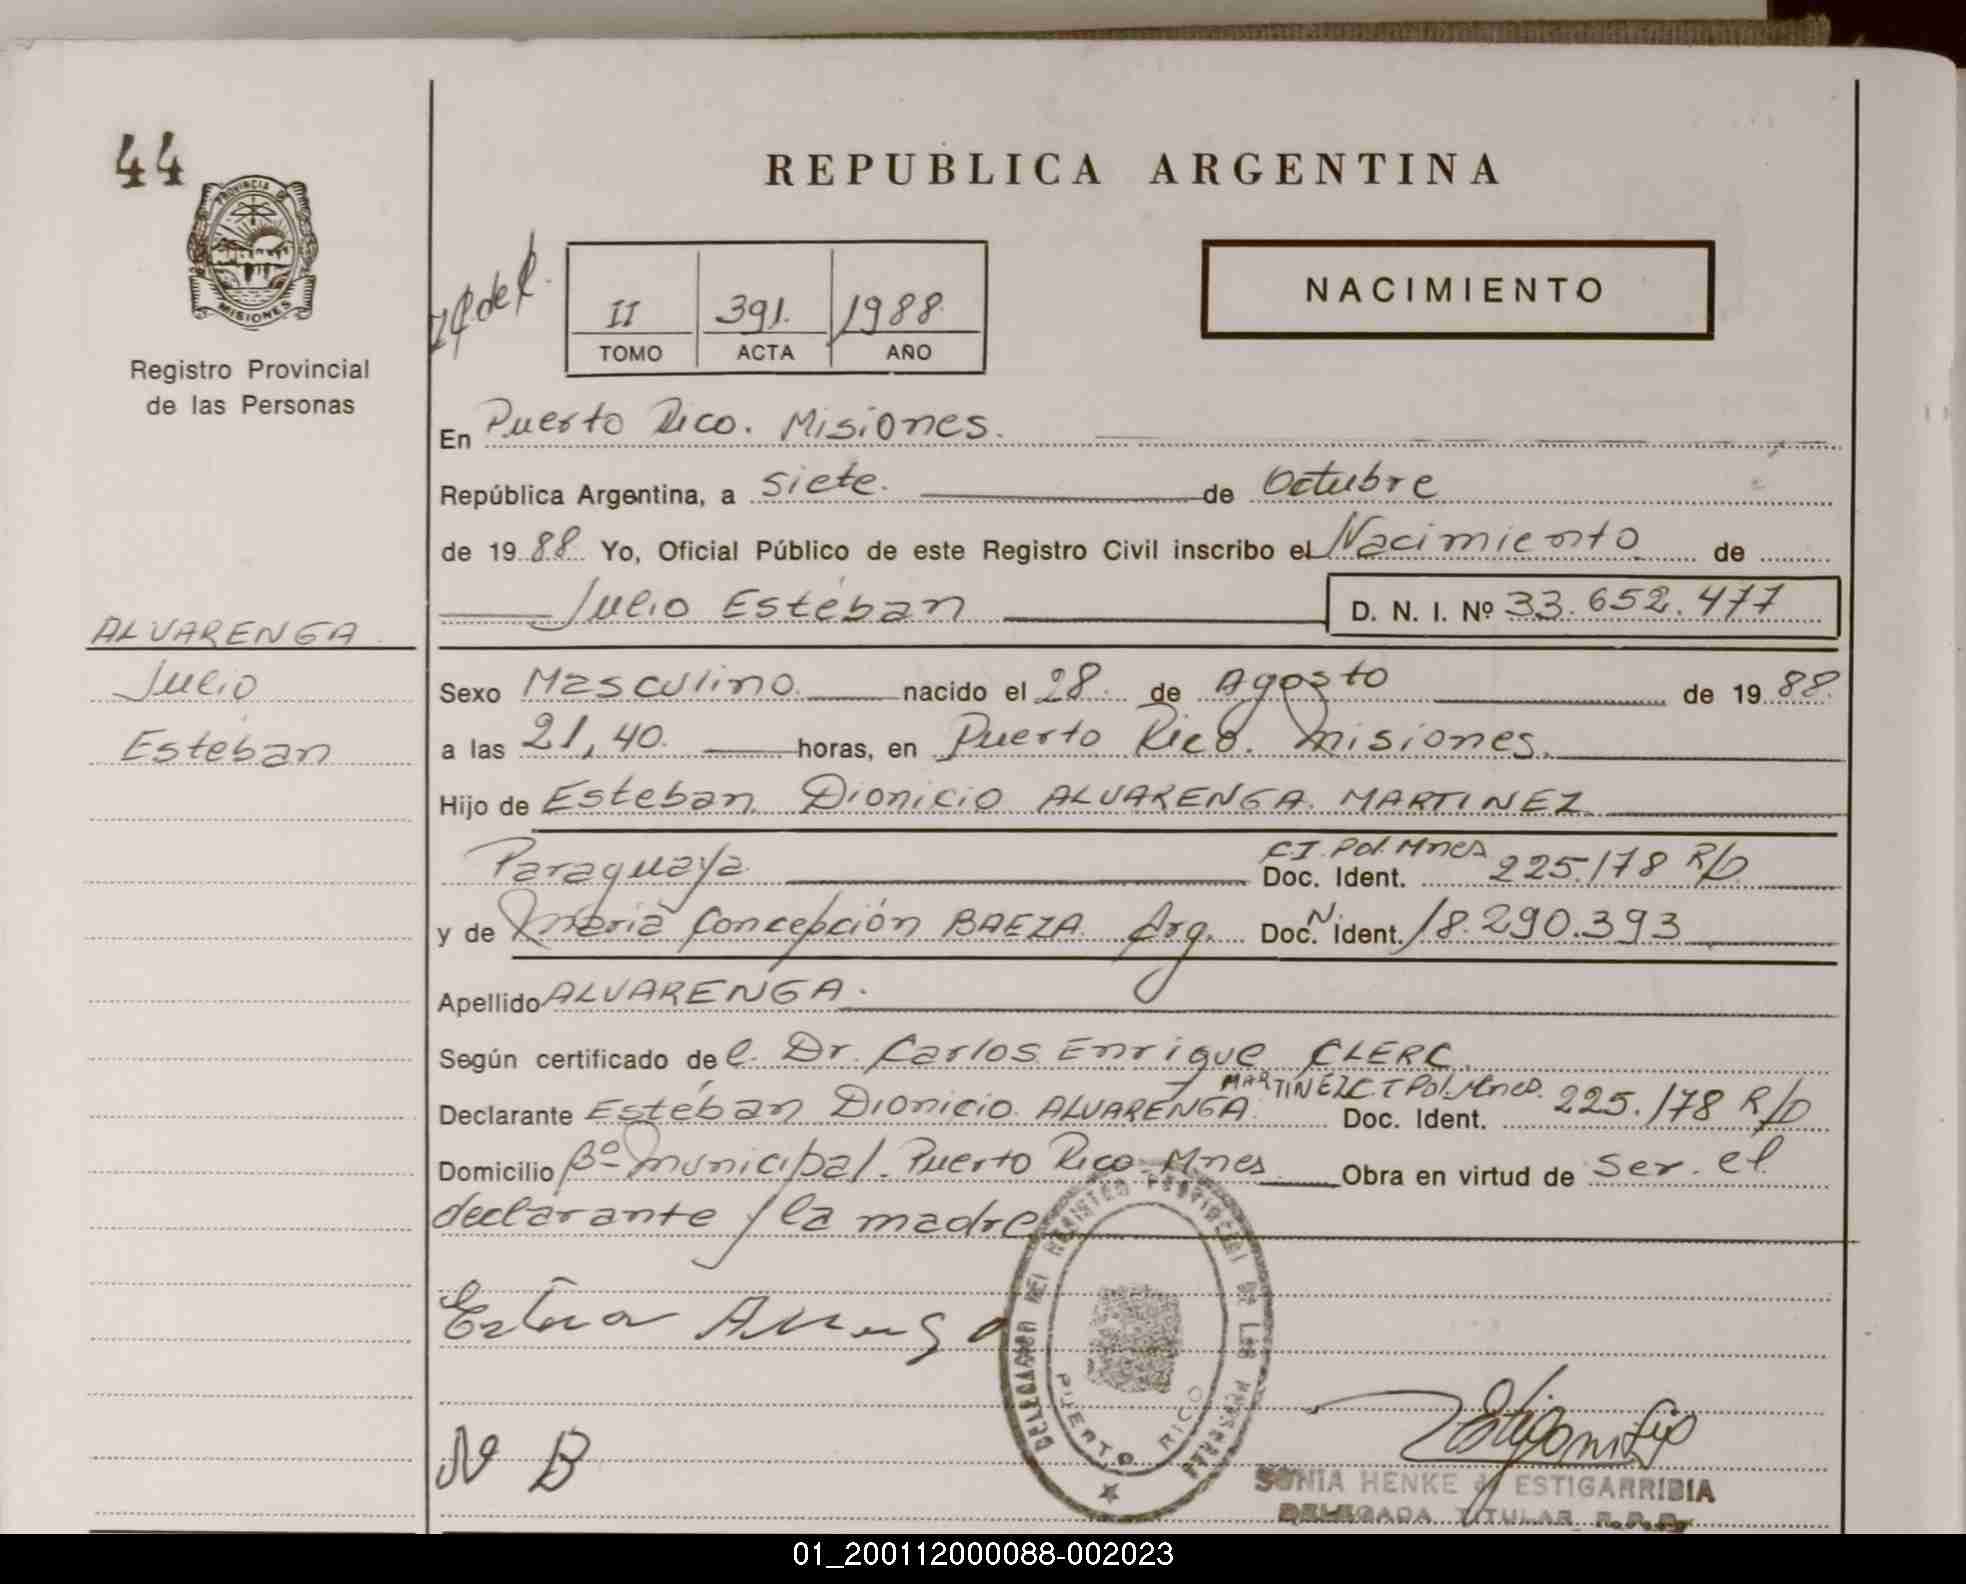 44
PROVINCIA DE
MISIONES
Registro Provincial
de las Personas
ALVARENGA
Julio
Estéban
REPUBLICA ARGENTINA
II 391. 1988.
TOMO ACTA AÑO
NACIMIENTO
En Puerto Rico. Misiones.
República Argentina, a siete. de Octubre
de 1988. Yo, Oficial Público de este Registro Civil inscribo el Nacimiento de
Julio Estéban D. N. I. Nº 33.652.477
Sexo Masculino. nacido el 28. de Agosto de 1988.
a las 21,40. horas, en Puerto Rico. Misiones.
Hijo de Esteban Dionicio ALVARENGA MARTINEZ
Paraguaya C.I. Pol. Mnes Doc. Ident. 225.178 R/D
y de Maria Concepción BAEZA. Arg. Doc. N. Ident. 18.290.393
Apellido ALVARENGA.
Según certificado del. Dr. Carlos Enrique CLERC.
Declarante Estéban Dionicio ALVARENGA MARTINEZ C.I Pol. Mnes. Doc. Ident. 225.178 R/D
Domicilio Bº Municipal. Puerto Rico Mnes Obra en virtud de ser. el
declarante y la madre
DELEGACION DEL REGISTRO PROVINCIAL DE LAS PERSONAS
PUERTO RICO
N B
SONIA HENKE de ESTIGARRIBIA
DELEGADA TITULAR R.P.P.
01_200112000088-002023